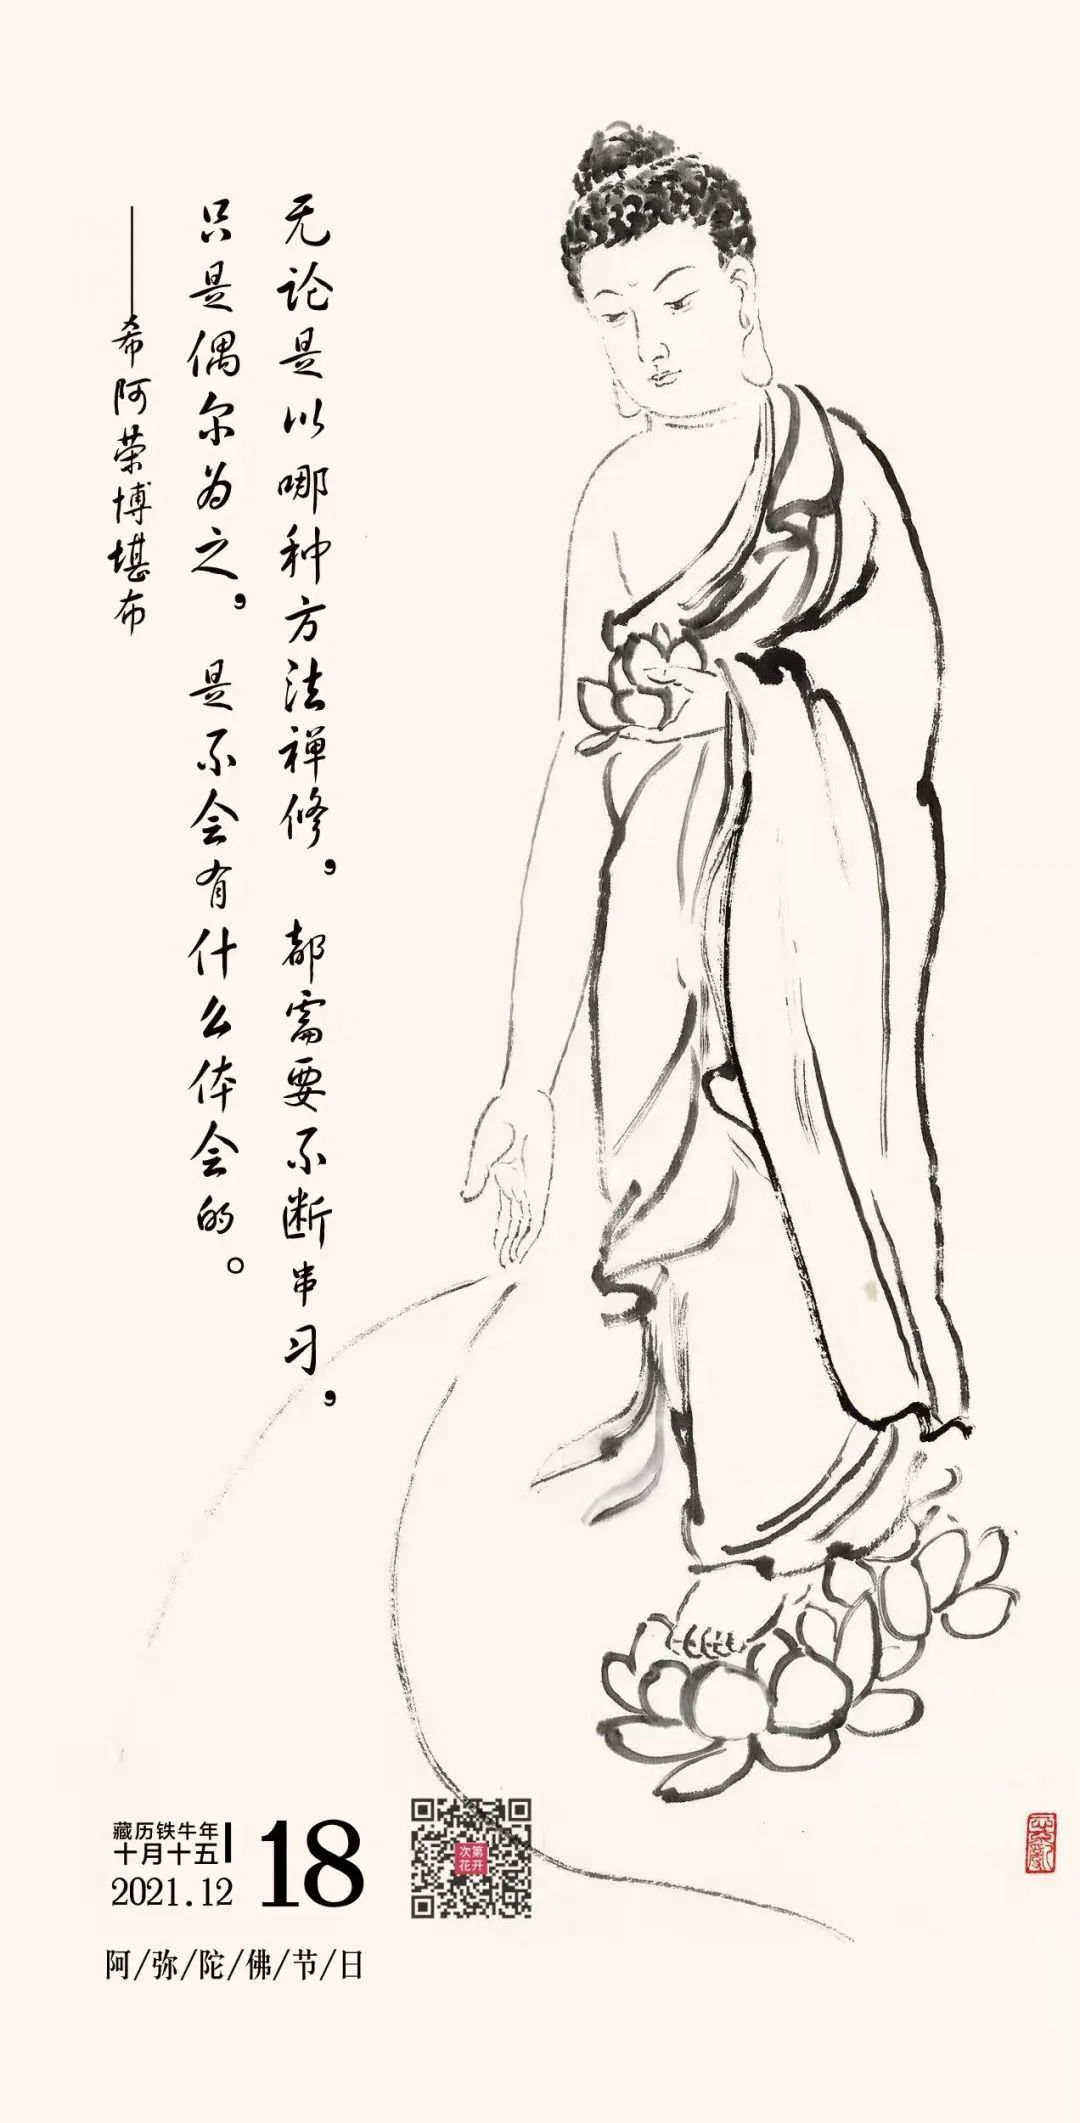 无论是以哪种方法禅修，都需要不断串习，
只是偶尔为之，是不会有什么体会的。
——希阿荣博堪布
藏历铁牛年
十月十五
2021.12
18
次第花开
阿/弥/陀/佛/节/日